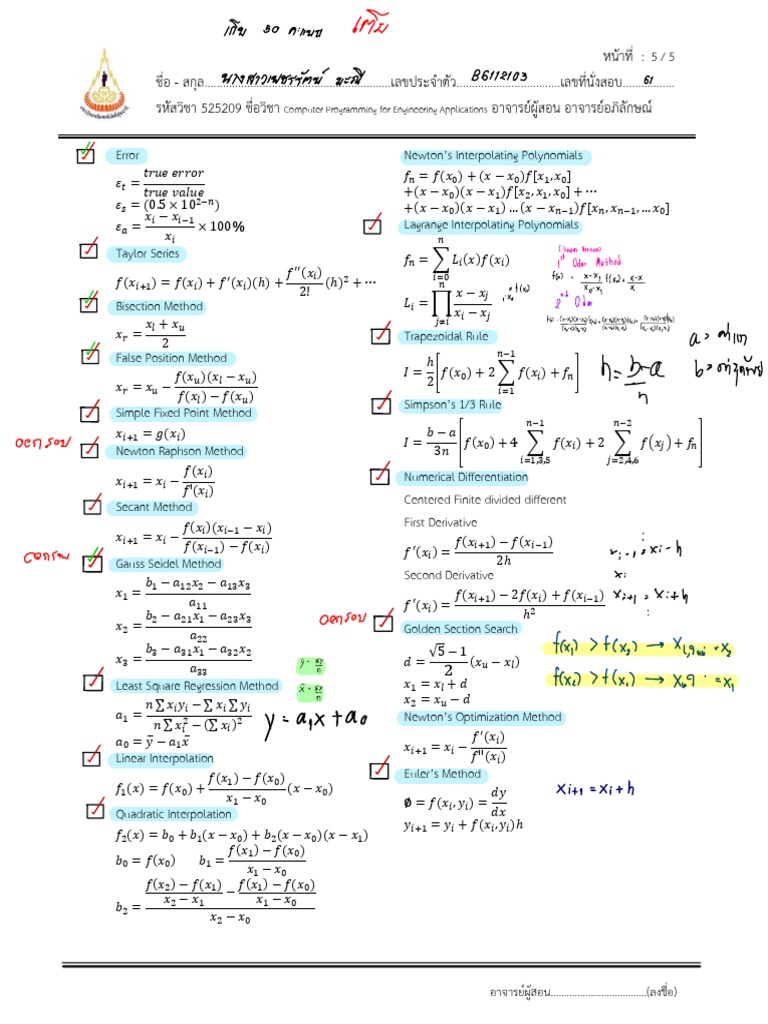 เก็บ 30 คะแนน เตย
หน้าที่ : 5 / 5
ชื่อ - สกุล นางสาวเพชรรัตน์ มะณี เลขประจำตัว B6112103 เลขที่นั่งสอบ 61
รหัสวิชา 525209 ชื่อวิชา Computer Programming for Engineering Applications อาจารย์ผู้สอน อาจารย์อภิลักษณ์
Error
ε_t = true error / true value
ε_s = (0.5 × 10^(2−n))
ε_a = (x_i − x_(i−1)) / x_i × 100%
Taylor Series
f(x_(i+1)) = f(x_i) + f'(x_i)(h) + f''(x_i)/2! (h)^2 + ⋯
Bisection Method
x_r = (x_l + x_u) / 2
False Position Method
x_r = x_u − f(x_u)(x_l − x_u) / (f(x_l) − f(x_u))
Simple Fixed Point Method
x_(i+1) = g(x_i)
ออกสอบ
Newton Raphson Method
x_(i+1) = x_i − f(x_i) / f'(x_i)
Secant Method
x_(i+1) = x_i − f(x_i)(x_(i−1) − x_i) / (f(x_(i−1)) − f(x_i))
ออกสอบ
Gauss Seidel Method
x_1 = (b_1 − a_12x_2 − a_13x_3) / a_11
x_2 = (b_2 − a_21x_1 − a_23x_3) / a_22
x_3 = (b_3 − a_31x_1 − a_32x_2) / a_33
ȳ = Σy / n
x̄ = Σx / n
Least Square Regression Method
a_1 = (n∑x_iy_i − ∑x_i∑y_i) / (n∑x_i^2 − (∑x_i)^2)
y = a_1x + a_0
a_0 = ȳ − a_1x̄
Linear Interpolation
f_1(x) = f(x_0) + (f(x_1) − f(x_0)) / (x_1 − x_0) (x − x_0)
Quadratic Interpolation
f_2(x) = b_0 + b_1(x − x_0) + b_2(x − x_0)(x − x_1)
b_0 = f(x_0) b_1 = (f(x_1) − f(x_0)) / (x_1 − x_0)
b_2 = ((f(x_2) − f(x_1)) / (x_2 − x_1) − (f(x_1) − f(x_0)) / (x_1 − x_0)) / (x_2 − x_0)
Newton's Interpolating Polynomials
f_n = f(x_0) + (x − x_0)f[x_1, x_0]
+(x − x_0)(x − x_1)f[x_2, x_1, x_0] + ⋯
+(x − x_0)(x − x_1) … (x − x_(n−1))f[x_n, x_(n−1), … x_0]
Lagrange Interpolating Polynomials
f_n = ∑_(i=0)^n L_i(x)f(x_i)
L_i = ∏_(j≠i)^n (x − x_j) / (x_i − x_j)
1st Oder Method
2nd Oder
Trapezoidal Rule
I = h/2 [f(x_0) + 2 ∑_(i=1)^(n−1) f(x_i) + f_n]
h = (b-a) / n
Simpson's 1/3 Rule
I = (b − a)/3n [f(x_0) + 4 ∑_(i=1,3,5)^(n−1) f(x_i) + 2 ∑_(j=2,4,6)^(n−2) f(x_j) + f_n]
Numerical Differentiation
Centered Finite divided different
First Derivative
f'(x_i) = (f(x_(i+1)) − f(x_(i−1))) / 2h
x_(i-1) = x_i - h
x_i
Second Derivative
f'(x_i) = (f(x_(i+1)) − 2f(x_i) + f(x_(i−1))) / h^2
x_(i+1) = x_i + h
ออกสอบ
Golden Section Search
d = (√5 − 1)/2 (x_u − x_l)
x_1 = x_l + d
x_2 = x_u − d
Newton's Optimization Method
x_(i+1) = x_i − f'(x_i) / f''(x_i)
Euler's Method
∅ = f(x_i, y_i) = dy/dx
x_(i+1) = x_i + h
y_(i+1) = y_i + f(x_i, y_i)h
อาจารย์ผู้สอน....................................(ลงชื่อ)